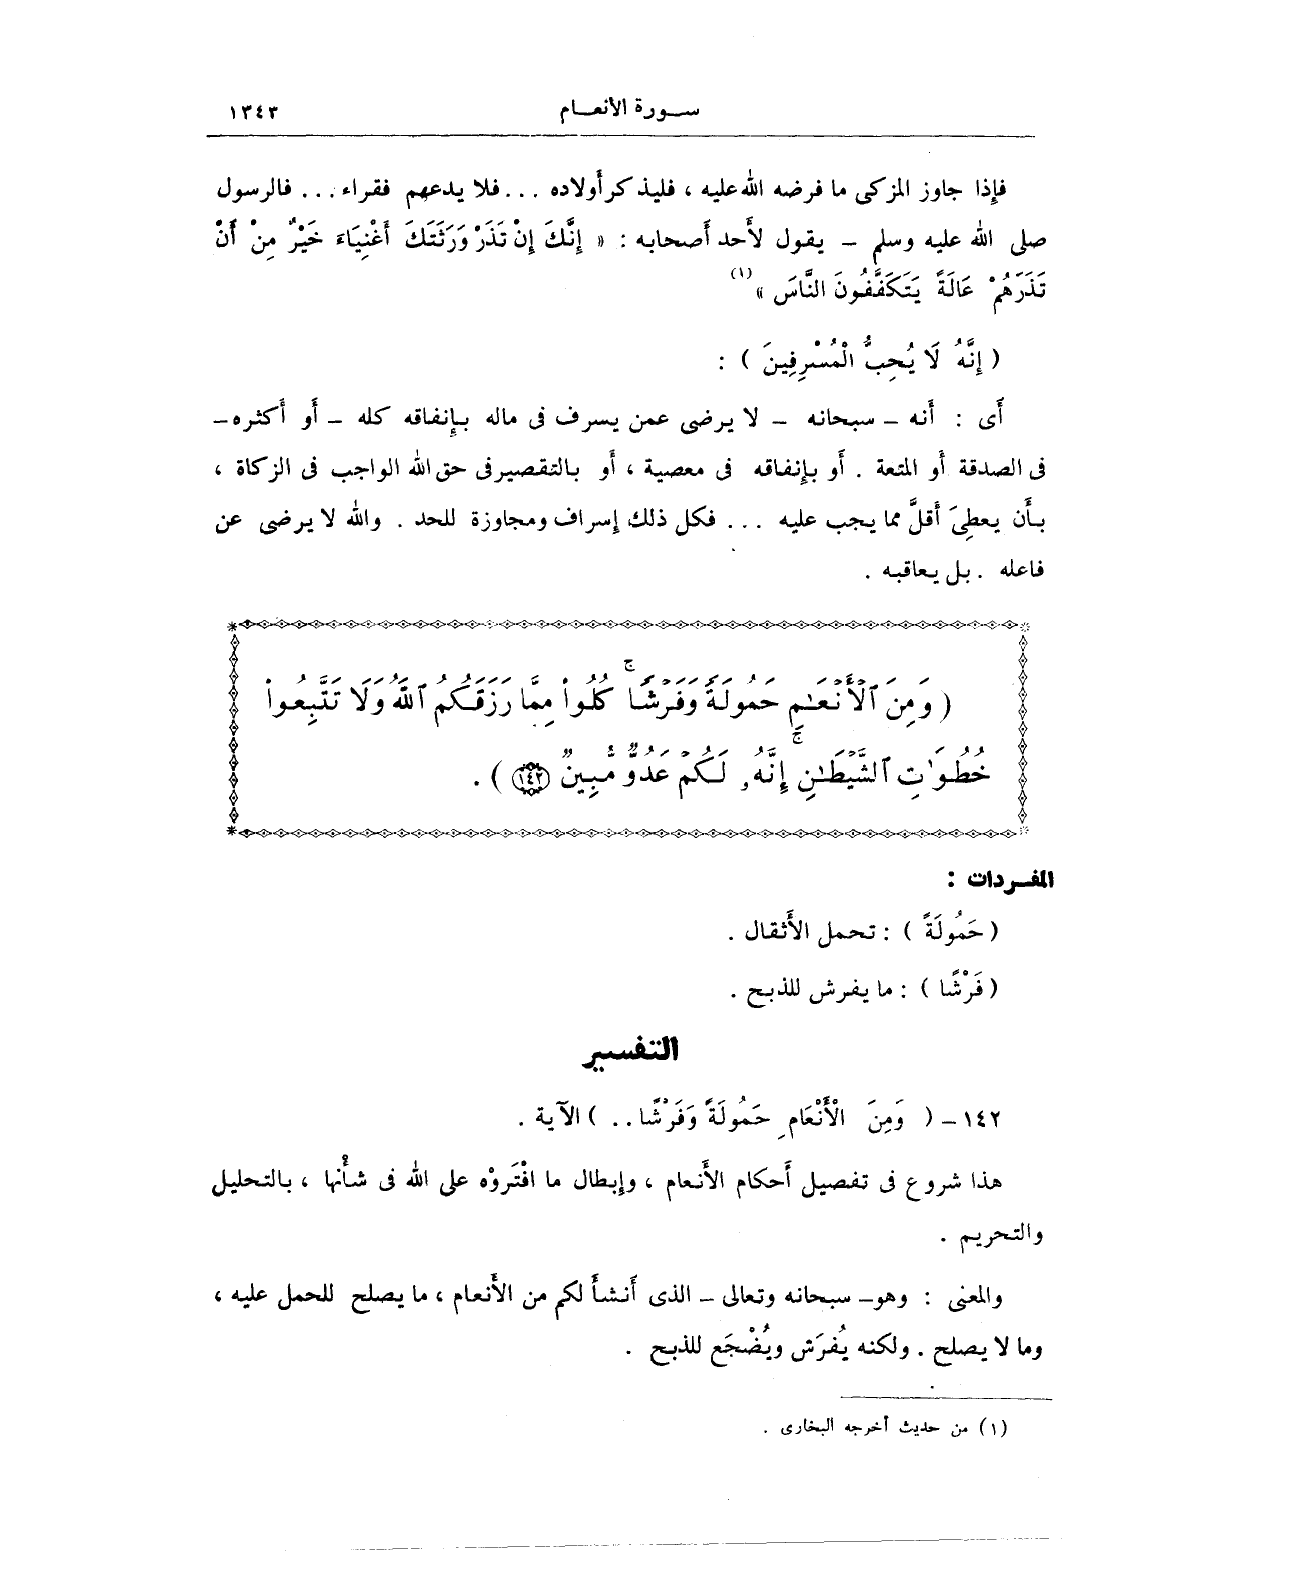 سورة الأنعام ١٣٤٣
فإذا جاوز المزكى ما فرضه الله عليه ، فليذكر أولاده ... فلا يدعهم فقراء ... فالرسول
صلى الله عليه وسلم – يقول لأحد أصحابه : « إِنَّكَ إِنْ تَذَرْ وَرَثَتَكَ أَغْنِيَاءَ خَيْرٌ مِنْ أَنْ
تَذَرَهُمْ عَالَةً يَتَكَفَّفُونَ النَّاسَ » (١)
( إِنَّهُ لَا يُحِبُّ الْمُسْرِفِينَ ) :
أَى : أَنه – سبحانه – لا يرضى عمن يسرف فى ماله بإِنفاقه كله – أَو أَكثره –
فى الصدقة أَو المتعة . أَو بإِنفاقه فى معصية ، أَو بالتقصير فى حق الله الواجب فى الزكاة ،
بأَن يعطِىَ أَقلَّ مما يجب عليه ... فكل ذلك إِسراف ومجاوزة للحد . والله لا يرضى عن
فاعله . بل يعاقبه .
( وَمِنَ ٱلْأَنْعَـٰمِ حَمُولَةً وَفَرْشًا ۚ كُلُوا۟ مِمَّا رَزَقَكُمُ ٱللَّهُ وَلَا تَتَّبِعُوا۟
خُطُوَٰتِ ٱلشَّيْطَـٰنِ ۚ إِنَّهُۥ لَكُمْ عَدُوٌّ مُّبِينٌ ١٤٢ ) .
المفـردات :
( حَمُولَةً ) : تحمل الأَثقال .
( فَرْشًا ) : ما يفرش للذبح .
التفسير
١٤٢ – ( وَمِنَ الْأَنْعَامِ حَمُولَةً وَفَرْشًا .. ) الآية .
هذا شروع فى تفصيل أَحكام الأَنعام ، وإِبطال ما افْتَروْه على الله فى شأْنها ، بالتحليل
والتحريم .
والمعنى : وهو – سبحانه وتعالى – الذى أَنشأَ لكم من الأَنعام ، ما يصلح للحمل عليه ،
وما لا يصلح . ولكنه يُفرَش ويُضْجَع للذبح .
(١) من حديث أخرجه البخارى .